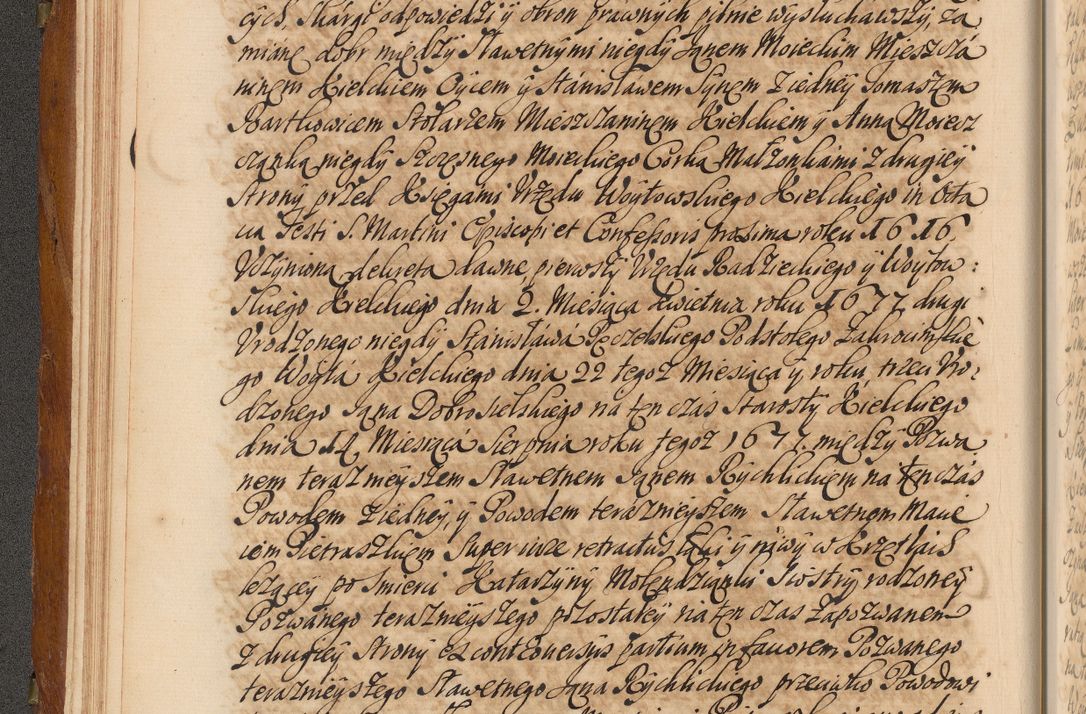 cych, skargi odpowiedzi y obron prawnych pilnie wysłuchawszy, za
mianę dobr między Sławetnymi niegdy Janem Moieckim Mieszcza
ninem Kielckiem Oycem y Stanisławem Synem z iedney Tomaszem
Bartłowicem Stolarzem Mieszczaninem Kielckiem y Anną Morecz
czanką niegdy Szczęsnego Moreckiego Corką Małżonkami z drugiey
strony przed Xięgami Urzędu Woytowskiego Kielckiego in Octa
va Festi S. Martini Episcopi et Confessoris proxima roku 1616
Uczyniona, dekreta dawne pierwszy Urzędu Radzieckiego y Woytow:
skiego Kielckiego dnia 2. Miesiąca kwietnia roku 1677 drugi
Urodzonego niegdy Stanisława Pęczelskiego Podstolego Zakrocimskie
go Woyta Kielckiego dnia 22 tegoż Miesiąca y roku, trzeci Uro:
dzonego Jana Dobrosielskiego na ten czas Starosty Kielckiego
dnia 14 Miesiąca Sierpnia roku tegoż 1677 między Pozwa
nem terazniejszem Sławetnem Janem Rychlickiem na ten czas
Powodem z iedney, y Powodem teraznieyszem Sławetnem Macie
iem Pietraszkiem Super iure retractus łąki y niwy w Krzętlach
leżącey po śmierci Katarzyny Molendzianki Siostry rodzoney
Pozwanego teraznieyszego pozostałey na ten czas Zapozwanem
z drugiey strony ex controversys partium in favorem Pozwanego
teraznieyszego Sławetnego Jana Rychlickiego przeciwko Powodowi